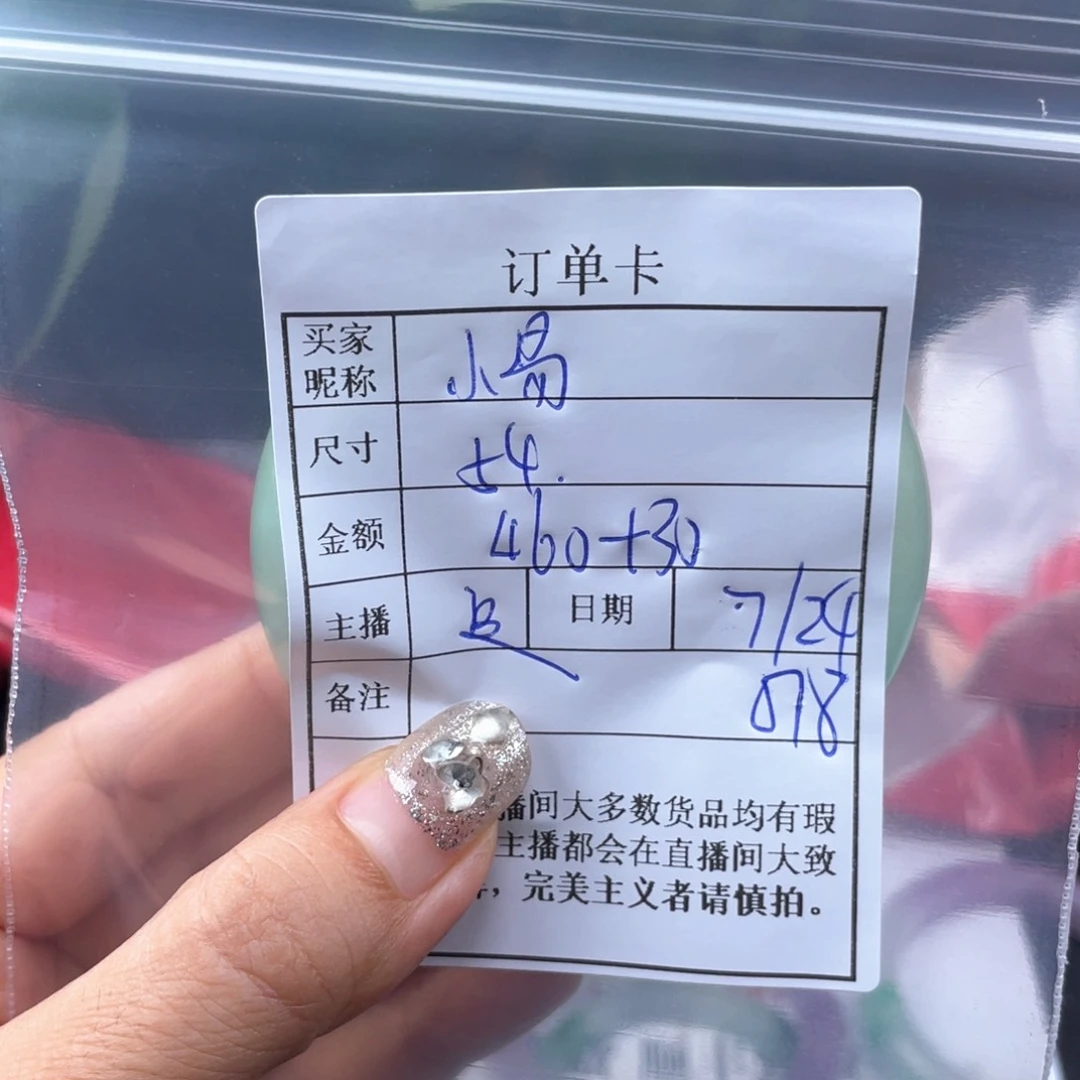 订单卡
买家昵称 小易
尺寸 54.
金额 460+30
主播 日期 7/24
备注 078
播间大多数货品均有瑕
主播都会在直播间大致
，完美主义者请慎拍。